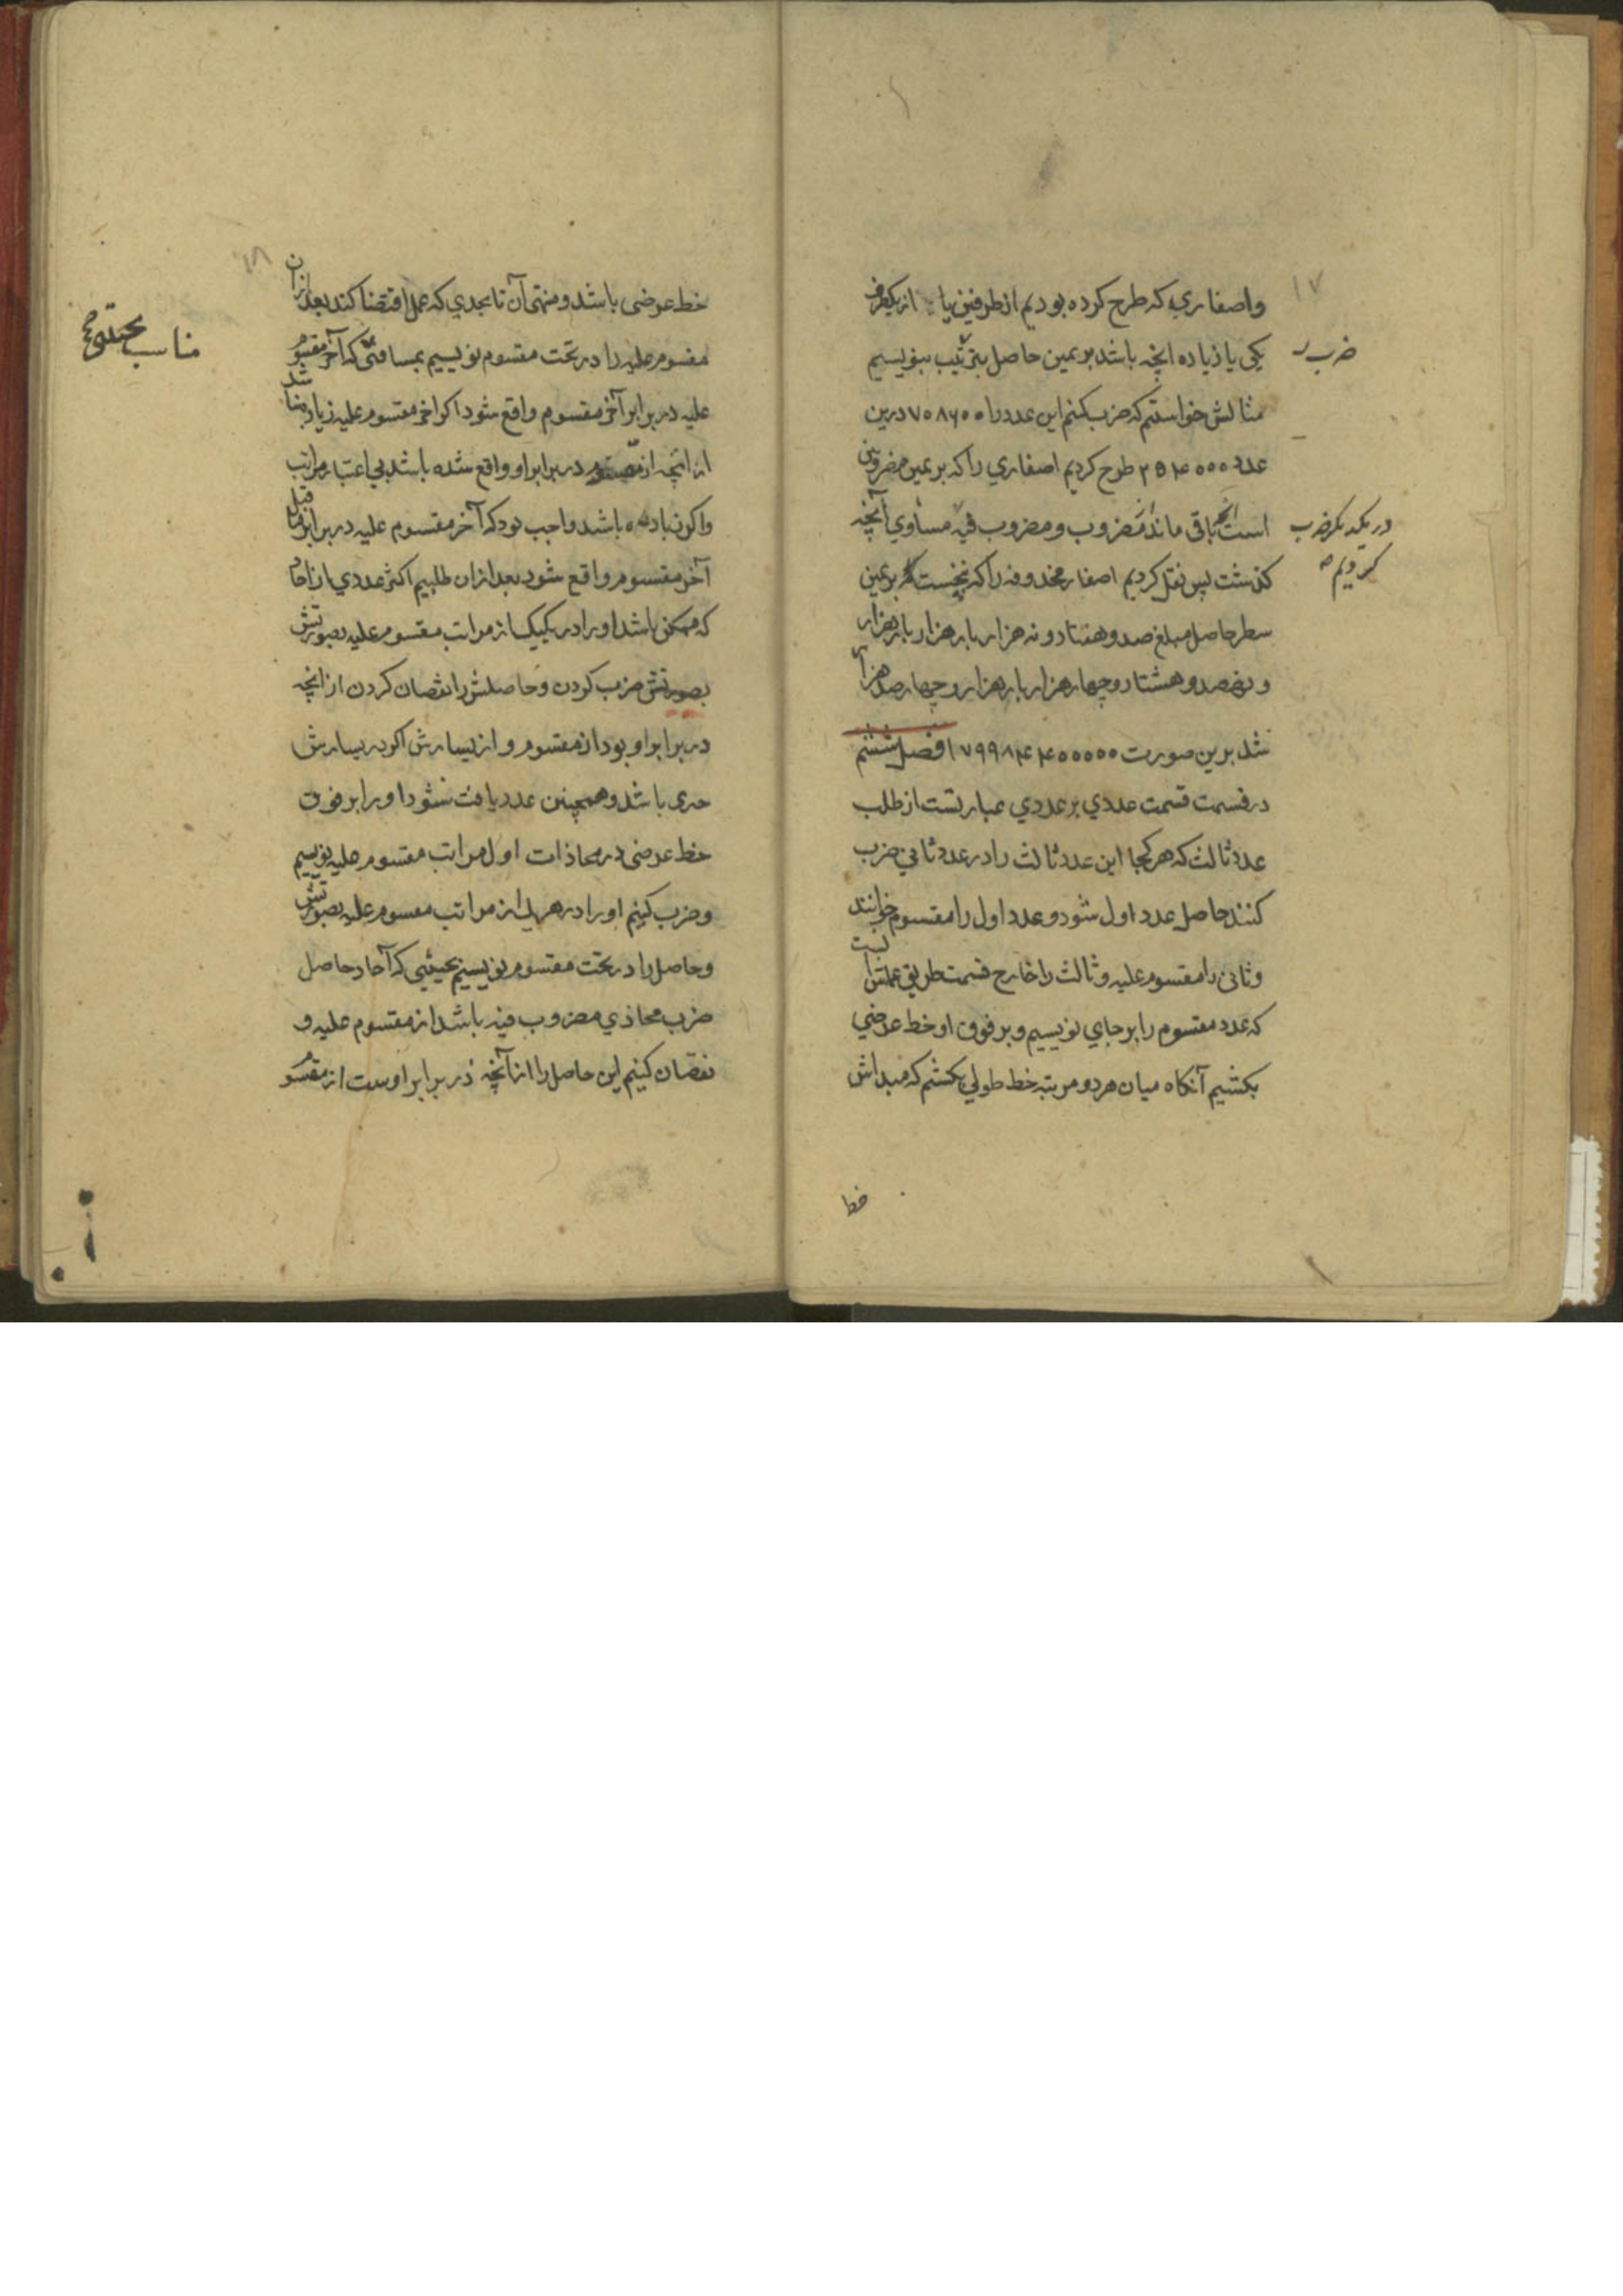 ۱۷
واصفاری که طرح کرده بودیم از طرفین یا از یکطرف
یکی یا زیاده انچه باشد بر یمین حاصل بترتیب بنویسیم
ضرب
مثالش خواستیم که ضرب کنیم این عدد را ۷۵۸۶۰۰ درین
عدد طرح کردیم اصفاری را که بر یمین مضروبین
است انچه باقی ماند از مضروب و مضروب فیه مساوی آنچه
در یکدیکر ضرب
کردیم
کذشت پس نقل کردیم اصفار محذوفه را که پنجست بر یمین
سطر حاصل مبلغ صد و هفتاد و نه هزار بار هزار بار هزار
و نهصد و هشتاد و چهار هزار بار هزار و چهار صد هزار
شد برین صورت ۱۷۹۹۸۴۴۰۰۰۰۰ فصل ششم
در قسمت قسمت عددی بر عددی عبارتست از طلب
عدد ثالث که هر کجا این عدد ثالث را در عدد ثانی ضرب
کنند حاصل عدد اول شود و عدد اول را مقسوم خوانند
و ثانی را مقسوم علیه و ثالث را خارج قسمت طریق عملش آنست
که عدد مقسوم را بر جای نویسیم و بر فوق او خط عرضی
بکشیم آنکاه میان هر دو مرتبه خط طولی بکشیم که مبداش
خط
۱۸
خط عرضی باشد و منتهی آن تا بحدی که عمل اقتضا کند بعد ازان
مقسوم علیه را در تحت مقسوم نویسیم بمسافتی که آخر مقسوم
مناسب
علیه در برابر آخر مقسوم واقع شود اکر اخر مقسوم علیه زیاد نباشد
از انچه از مقسوم در برابر او واقع شده باشد بی اعتبار مراتب
و اکر زیاده باشد واجب بود که آخر مقسوم علیه در برابر ماقبل
آخر مقسوم واقع شود بعد ازان طلبیم اکثر عددی از احاد
که ممکن باشد او را در یکیک از مراتب مقسوم علیه بصورتش
بصورتش ضرب کردن و حاصلش را نقصان کردن از انچه
در برابر او بود از مقسوم و از یسارش اکر در یسارش
عددی باشد و همچنین عدد یافت شود او را بر فوق
خط عرضی در محاذات اول مراتب مقسوم علیه نویسیم
و ضرب کنیم او را در هر یک از مراتب مقسوم علیه بصورتش
و حاصل را در تحت مقسوم نویسیم بحیثیی که آحاد حاصل
ضرب محاذی مضروب فیه باشد از مقسوم علیه و
نقصان کنیم این حاصل را از آنچه در برابر اوست از مقسوم